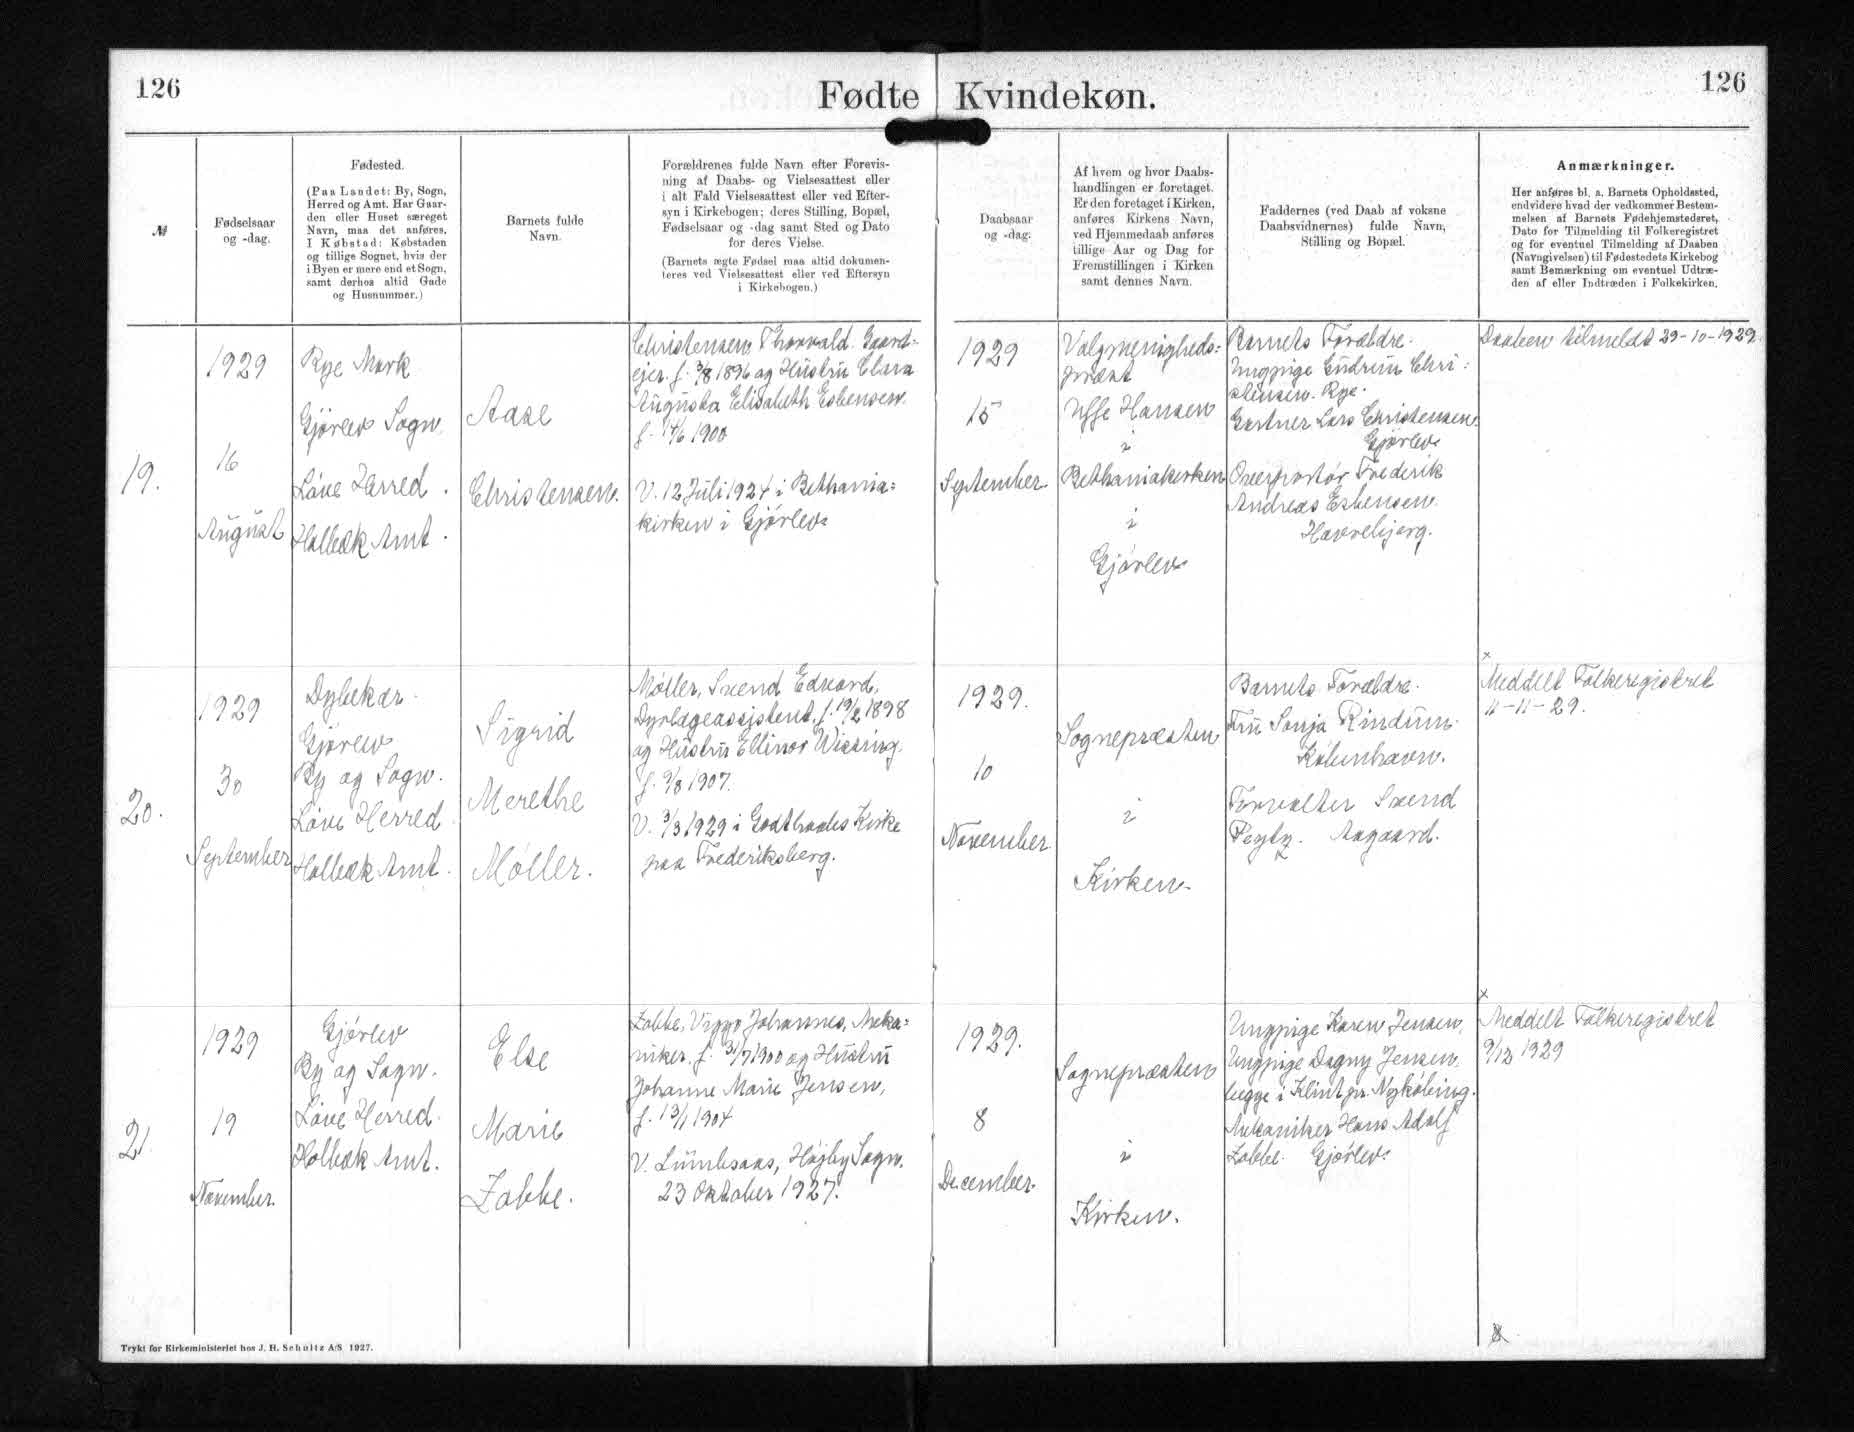 126
Fødte Kvindekøn.
126
№
Fødselsaar
og -dag.
Fødested.
(Paa Landet: By, Sogn,
Herred og Amt. Har Gaar-
den eller Huset særeget
Navn, maa det anføres.
I Købstad: Købstaden
og tillige Sognet, hvis der
i Byen er mere end et Sogn,
samt derhos altid Gade
og Husnummer.)
Barnets fulde
Navn.
Forældrenes fulde Navn efter Forevis-
ning af Daabs- og Vielsesattest eller
i alt Fald Vielsesattest eller ved Efter-
syn i Kirkebogen; deres Stilling, Bopæl,
Fødselsaar og -dag samt Sted og Dato
for deres Vielse.
(Barnets ægte Fødsel maa altid dokumen-
teres ved Vielsesattest eller ved Eftersyn
i Kirkebogen.)
Daabsaar
og -dag.
Af hvem og hvor Daabs-
handlingen er foretaget.
Er den foretaget i Kirken,
anføres Kirkens Navn,
ved Hjemmedaab anføres
tillige Aar og Dag for
Fremstillingen i Kirken
samt dennes Navn.
Faddernes (ved Daab af voksne
Daabsvidnernes) fulde Navn,
Stilling og Bopæl.
Anmærkninger.
Her anføres bl. a. Barnets Opholdssted,
endvidere hvad der vedkommer Bestem-
melsen af Barnets Fødehjemstedsret,
Dato for Tilmelding til Folkeregistret
og for eventuel Tilmelding af Daaben
(Navngivelsen) til Fødestedets Kirkebog
samt Bemærkning om eventuel Udtræ-
den af eller Indtræden i Folkekirken.
19.
1929
16
August
Rye Mark
Gjørlev Sogn
Løve Herred.
Holbæk Amt.
Aase
Christensen.
Christensen Thorvald Gaard=
ejer. f. 3/8 1896 og Hustru Clara
Augusta Elisabeth Esbensen.
f. 14/6 1900
V. 12 Juli 1924 i Bethania=
kirken i Gjørlev
1929
15
September
Valgmenigheds=
præst
Uffe Hansen
i
Bethaniakirken
i
Gjørlev
Barnets Forældre.
Ungpige Gudrun Chri=
stensen. Rye.
Gartner Lars Christensen.
Gjørlev
Overportør Frederik
Andreas Esbensen.
Havrebjerg.
Daaben tilmeldt 29-10-1929.
20.
1929
30
September
Dybekær.
Gjørlev
By og Sogn.
Løve Herred
Holbæk Amt.
Sigrid
Merethe
Møller.
Møller, Svend Edvard,
Dyrlægeassistent, f. 19/2 1898
og Hustru Ellinor Wissing.
f. 9/8 1907.
V. 3/3 1929 i Godthaabs Kirke
paa Frederiksberg.
1929.
10
November
Sognepræsten
i
Kirken.
Barnets Forældre.
Fru Sonja Rindum
København.
Forvalter Svend
Peytz. Aagaard.
x
Meddelt Folkeregistret
11-11-29.
21
1929
19
November.
Gjørlev
By og Sogn.
Løve Herred.
Holbæk Amt.
Else
Marie
Zobbe.
Zobbe, Viggo Johannes, Meka=
niker. f. 31/7 1900 og Hustru
Johanne Marie Jensen,
f. 13/1 1904
V. Lumbsaas, Højby Sogn.
23 Oktober 1927.
1929.
8
December.
Sognepræsten
i
Kirken.
Ungpige Karen Jensen,
Ungpige Dagny Jensen.
begge i Klint pr. Nykøbing.
Mekaniker Hans Adolf
Zobbe. Gjørlev
x
Meddelt Folkeregistret
9/12 1929
Trykt for Kirkeministeriet hos J. H. Schultz A/S 1927.